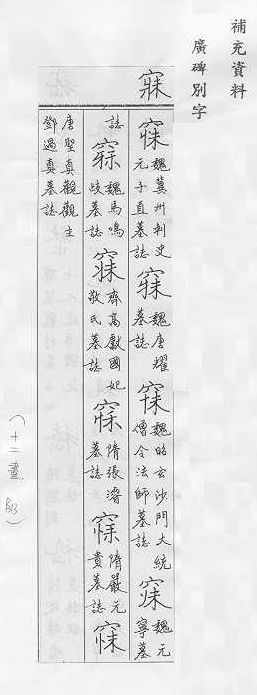 補充資料
廣碑別字
寐
魏冀州刺史元子直墓誌 魏唐耀墓誌 魏昭玄沙門大統僧令法師墓誌 魏元寧墓
誌 魏馬鳴墓誌 齊高獻國妃敬氏墓誌 隋張濬墓誌 隋嚴元貴墓誌
唐聖真觀觀主鄧過真墓誌
(十二畫 )